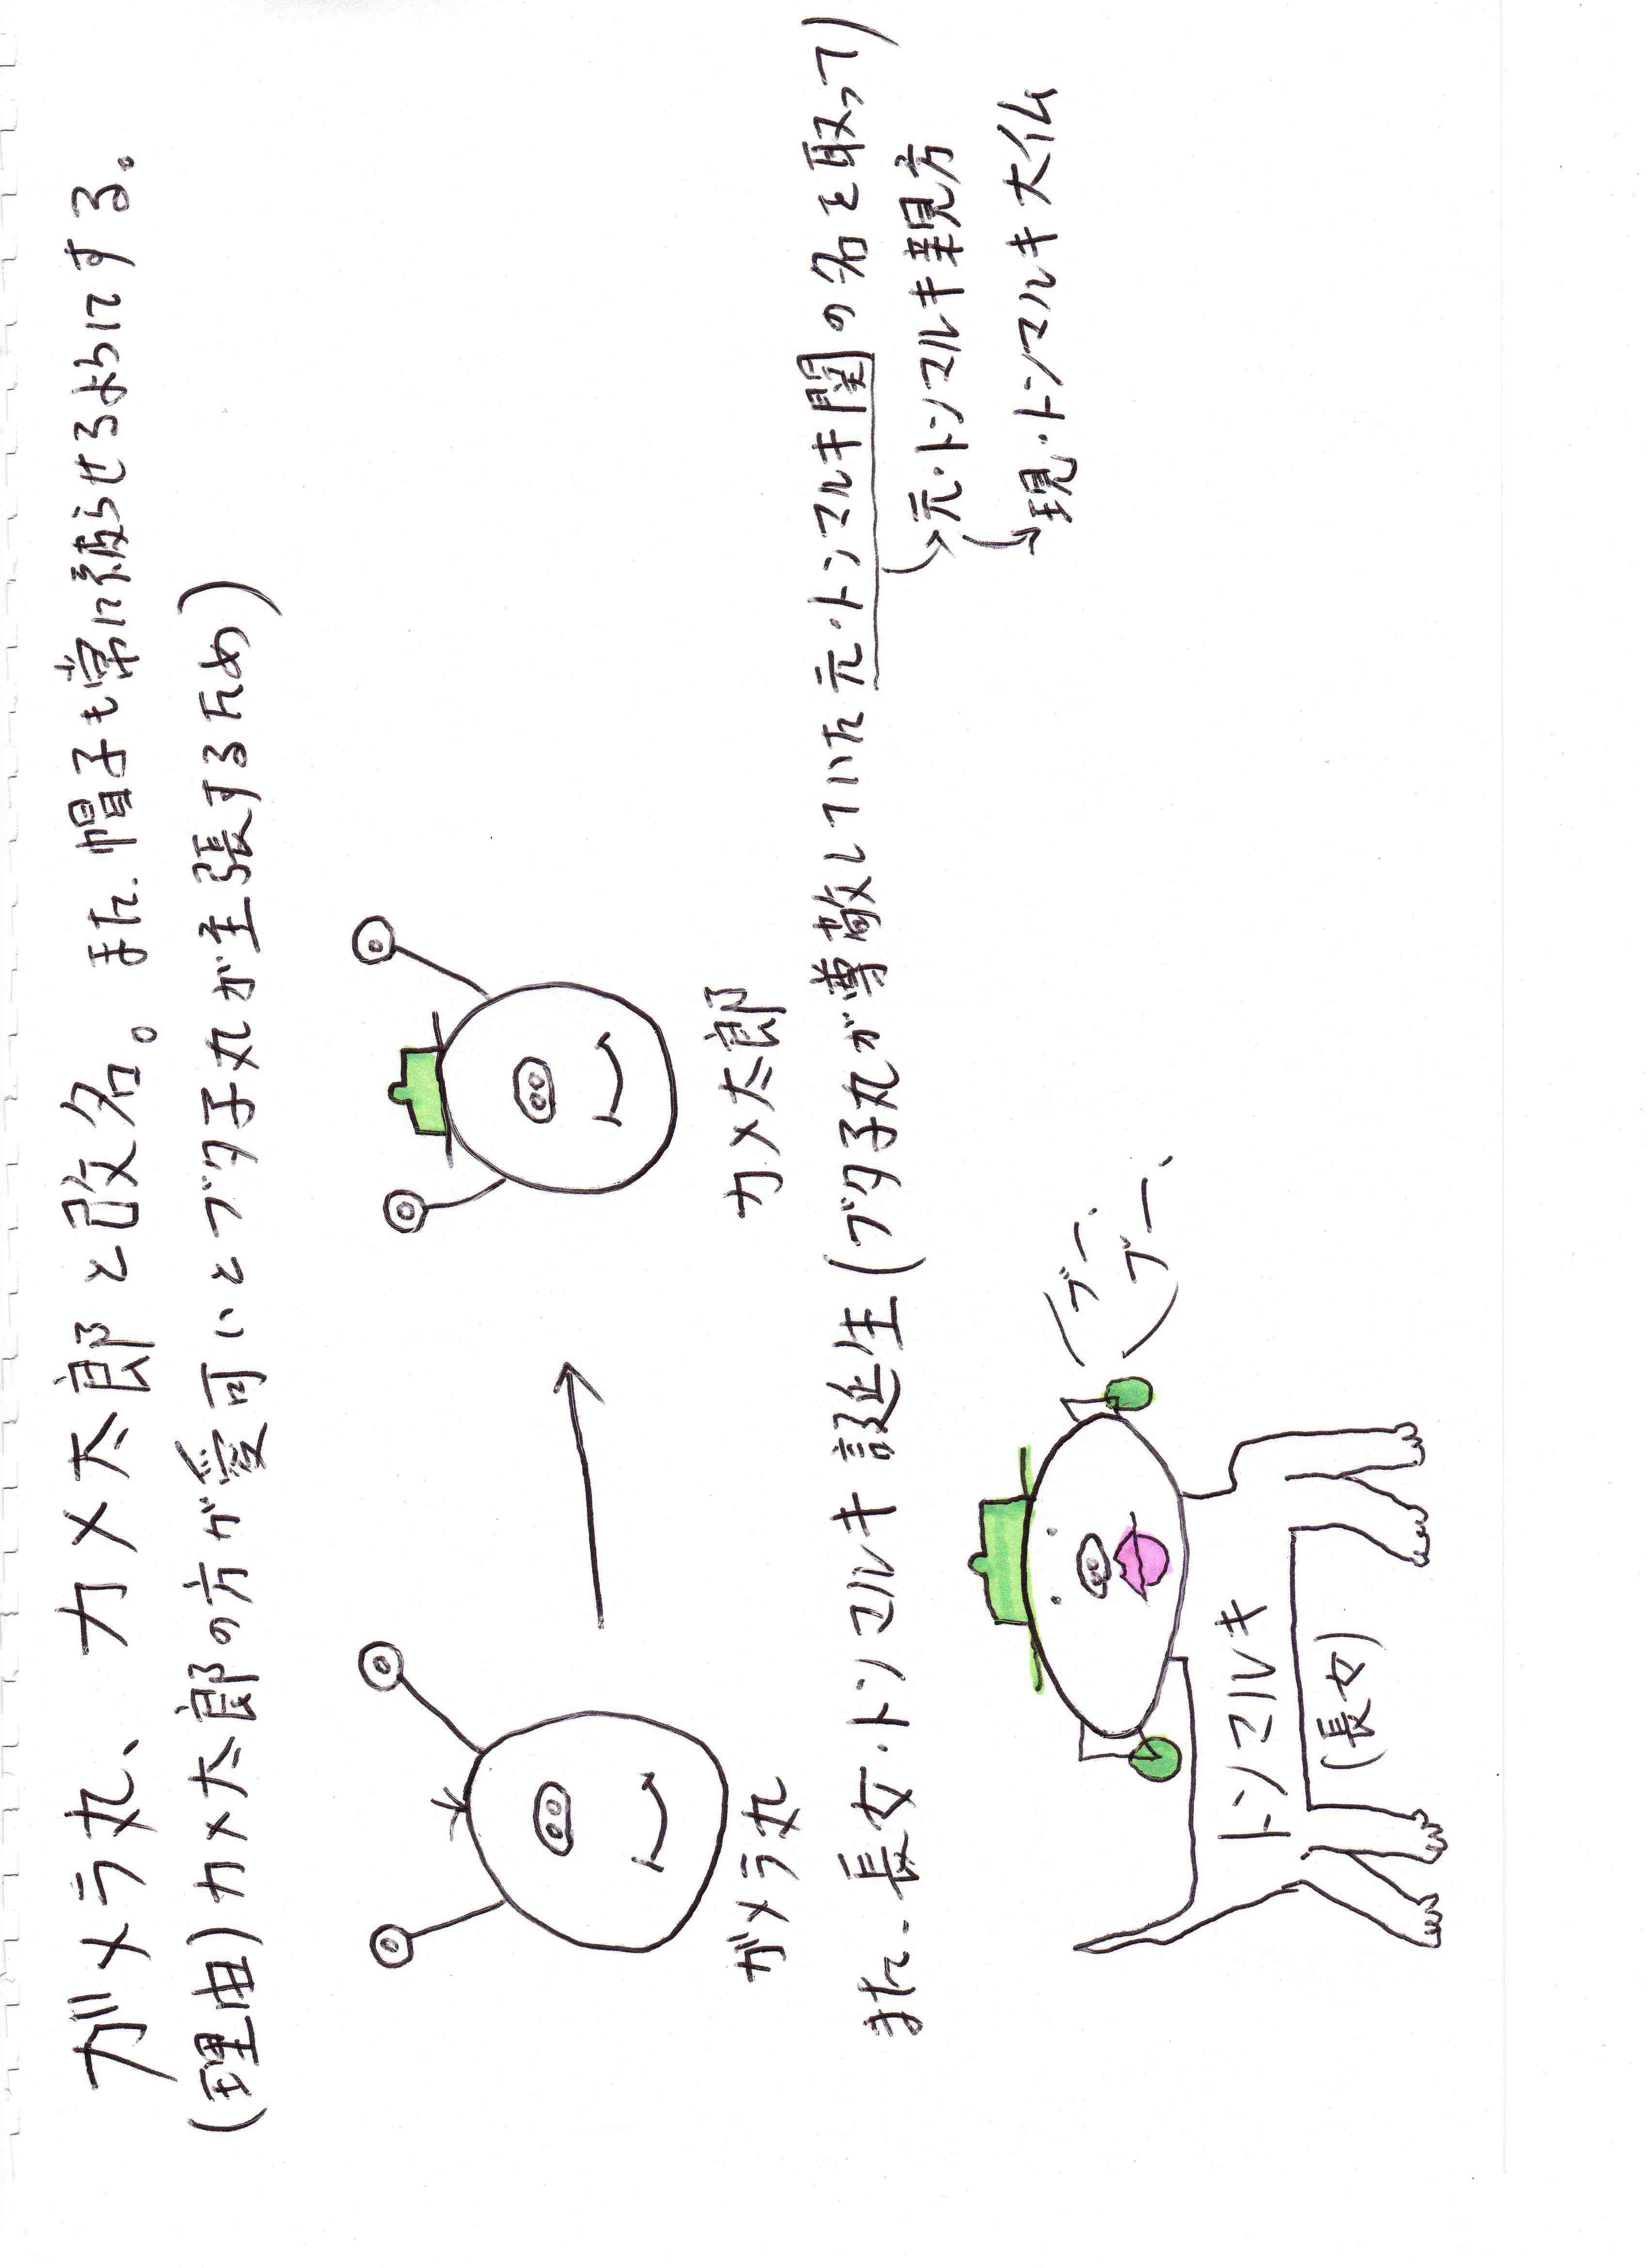 ガメラ丸、カメ太郎と改名。また、帽子も常に被らせるようにする。
(理由)カメ太郎の方が愛可いとブタ子丸が主張するため)
ガメラ丸
カメ太郎
また、長女・トンマルキ誕生(ブタ子丸が尊敬していた元・トンマルキ関の名を取って)
元・トンマルキ親方
現・トンマルキ大仏
ブー、
ブー、
トンマルキ
(長女)